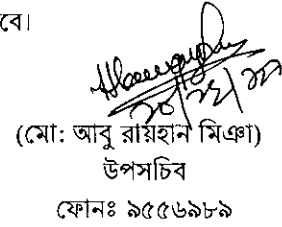 বে।
(মো: আবু রায়হান মিঞা)
উপসচিব
ফোনঃ ৯৫৫৬৯৮৯